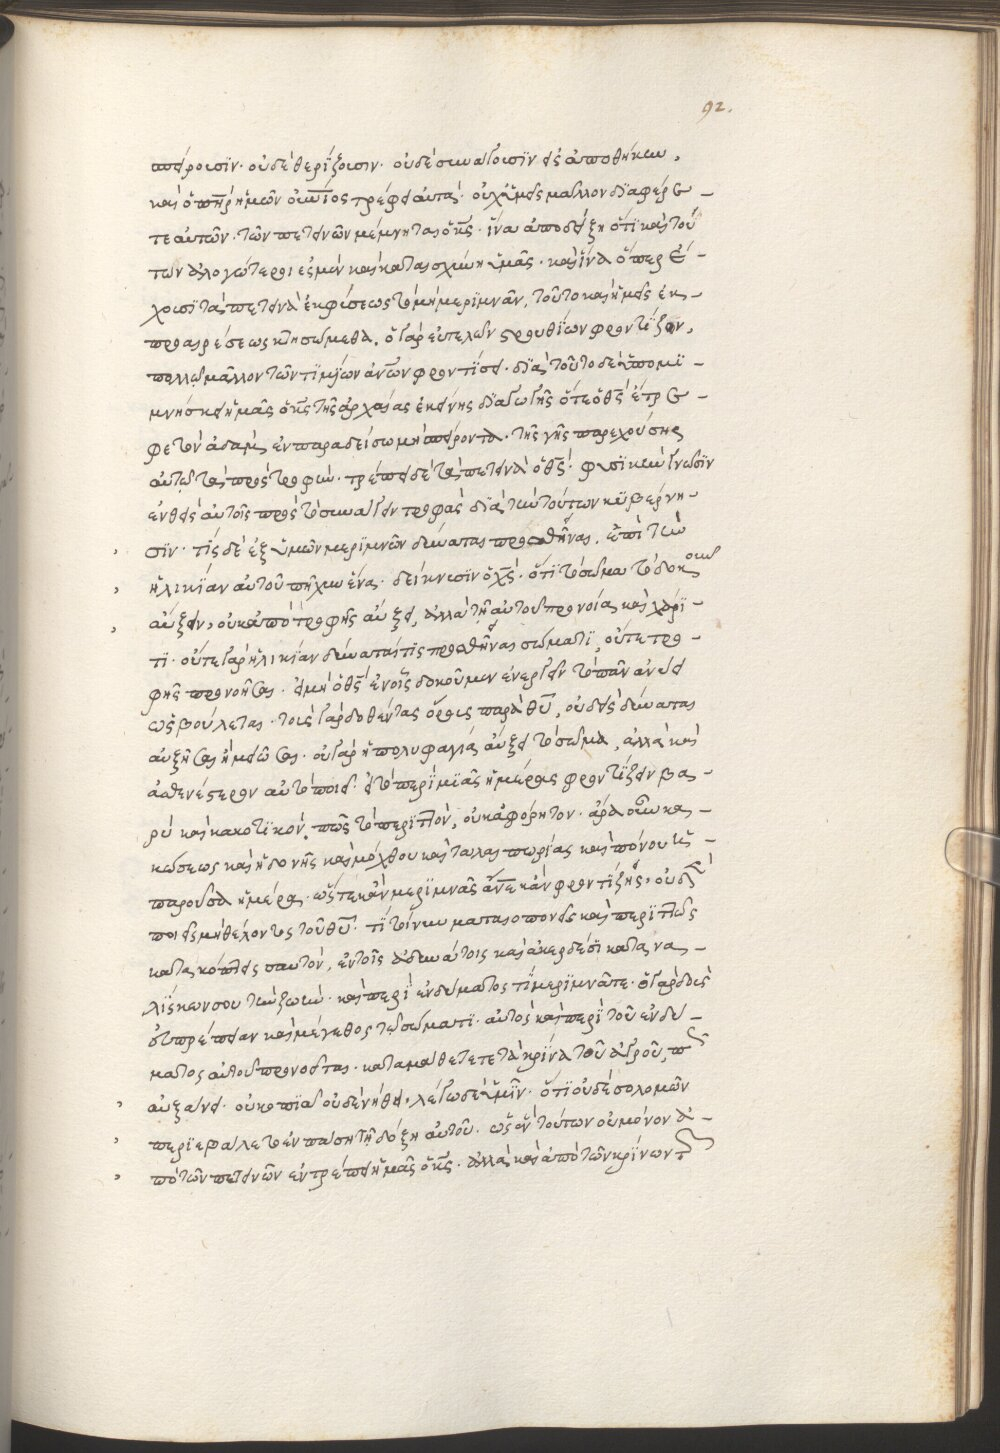 92.
σπείροισϊν· οὐδὲ θερίζοισιν· οὐδὲ συνάγοισϊν εἰς ἀποθήκην,
καὶ ὁ π̅η̅ρ̅ ἡμῶν ὁ οὐν̅ι̅ος τρέφει αὐτά· οὐχ ὑμεῖς μαλλον διαφέρε
τε αὐτῶν· τῶν πετεινῶν μέμνηται ὁ κ̅ς̅· ἵνα ἀποδείξη ὅτι καὶ τού
των ἀλογώτεροι ἐσμὲν καὶ καταισχύνη ὑμᾶς· καὶ ἵνα ὅπερ ἔ
χοισι τὰ πετεινὰ ἐκ φύσεως τὸ μὴ μεριμνᾶν, τοῦτο καὶ ἡμεῖς ἐκ
προαιρέσεως κτησώμεθα. ὁ γὰρ εὐτελῶν στρουθίων φροντίζων,
πολλῶ μᾶλλον τῶν τιμίων ἀν̅ω̅ν φροντίσει· διὰ τοῦτο δὲ ὑπομι
μνήσκει ἡμᾶς ὁ κ̅ς̅ τῆς ἀρχαίας ἐκείνης διαγωγῆς ὅτε ὁ θ̅ς̅ ἔτρε
φε τὸν ἀδὰμ ἐν παραδείσω μὴ σπείροντα· τῆς γῆς παρεχούσης
αὐτῶ τὰς πρὸς τροφήν· τρέπει δὲ τὰ πετεινὰ ὁ θ̅ς̅· φυσικὴν γνῶσϊν
ἐνθεὶς αὐτοῖς πρὸς τὸ συνάγειν τροφὰς διὰ τὴν τούτων κυβέρνη
σϊν· τίς δὲ ἐξ ὑμῶν μεριμνῶν δύναται προσθῆναι, ἐπὶ τὴν
ἡλικίαν αὐτοῦ πῆχυν ἕνα· δείκνυσϊν ὁ χ̅ς̅· ὅτι τὸ σῶμα τὸ δοκοῦν
αὔξειν, οὐκ ἀπὸ τροφῆς αὔξει, ἀλλὰ τῆ αὐτοῦ προνοία καὶ χάρι
τι· οὔτε γὰρ ἡλικίαν δύναταί τις προσθῆναι σώματι, οὔτε τρο
φῆς προνοῆσαι. εἰ μὴ ὁ θ̅ς̅ ἐν οἷς δοκοῦμεν ἐνεργεῖν τὸ πᾶν ἀνύει
ὡς βούλεται· τοὺς γὰρ δοθέντας ὅρους παρὰ θ̅υ̅, οὐδεὶς δύναται
αὐξῆσαι ἢ μειῶσαι· οὐ γὰρ ἡ πολυφαγία αὔξει τὸ σῶμα, ἀλλὰ καὶ
ἀσθενέστερον αὐτὸ ποιεῖ· εἰ τὸ περὶ μιᾶς ἡμέρας φροντίζειν βα
ρὺ καὶ κακοτικὸν, πῶς τὸ περιττὸν, οὐκ ἀφόρητον· ἆρα οὖν κα
κώσεως καὶ ἡδονῆς καὶ μόχθου καὶ ταλαιπωρίας καὶ πόνου ἡ
παροῦσα ἡμέρα· ὥστε κἂν μεριμνᾶς ἄν̅ε̅ κἂν φροντίζης, οὐδὲν
ποιεῖς μὴ θέλοντος τοῦ θ̅υ̅· τί τοίνυν ματαιοπονεῖς καὶ περιττῶς
κατακόπτεις σαυτόν, ἐν τοῖς ἀδυνάτοις καὶ ἀκερδέσϊ κατανα
λίσκων σου τὴν ζωήν· καὶ περὶ ἐνδύματος τί μεριμνᾶτε· ὁ γὰρ δοὺς
εὐπρέπειαν καὶ μέγεθος τῶ σώματι· αὐτὸς καὶ περὶ τοῦ ἐνδύ
ματος αὐτοῦ προνοεῖται· καταμάθετε τὰ κρίνα τοῦ ἀγροῦ, π
αὐξάνει· οὐ κοπιᾶ οὐδὲ νήθει, λέγω δὲ ὑμῖν· ὅτι οὐδὲ σολομὼν
περιεβάλετο ἐν πάση τῆ δόξη αὐτοῦ· ὡς ἓν τούτων οὐ μόνον ἀ
πὸ τῶν πετεινῶν ἐντρέπει ἡμᾶς ὁ κ̅ς̅· ἀλλὰ καὶ ἀπὸ τῶν κρίνων τ